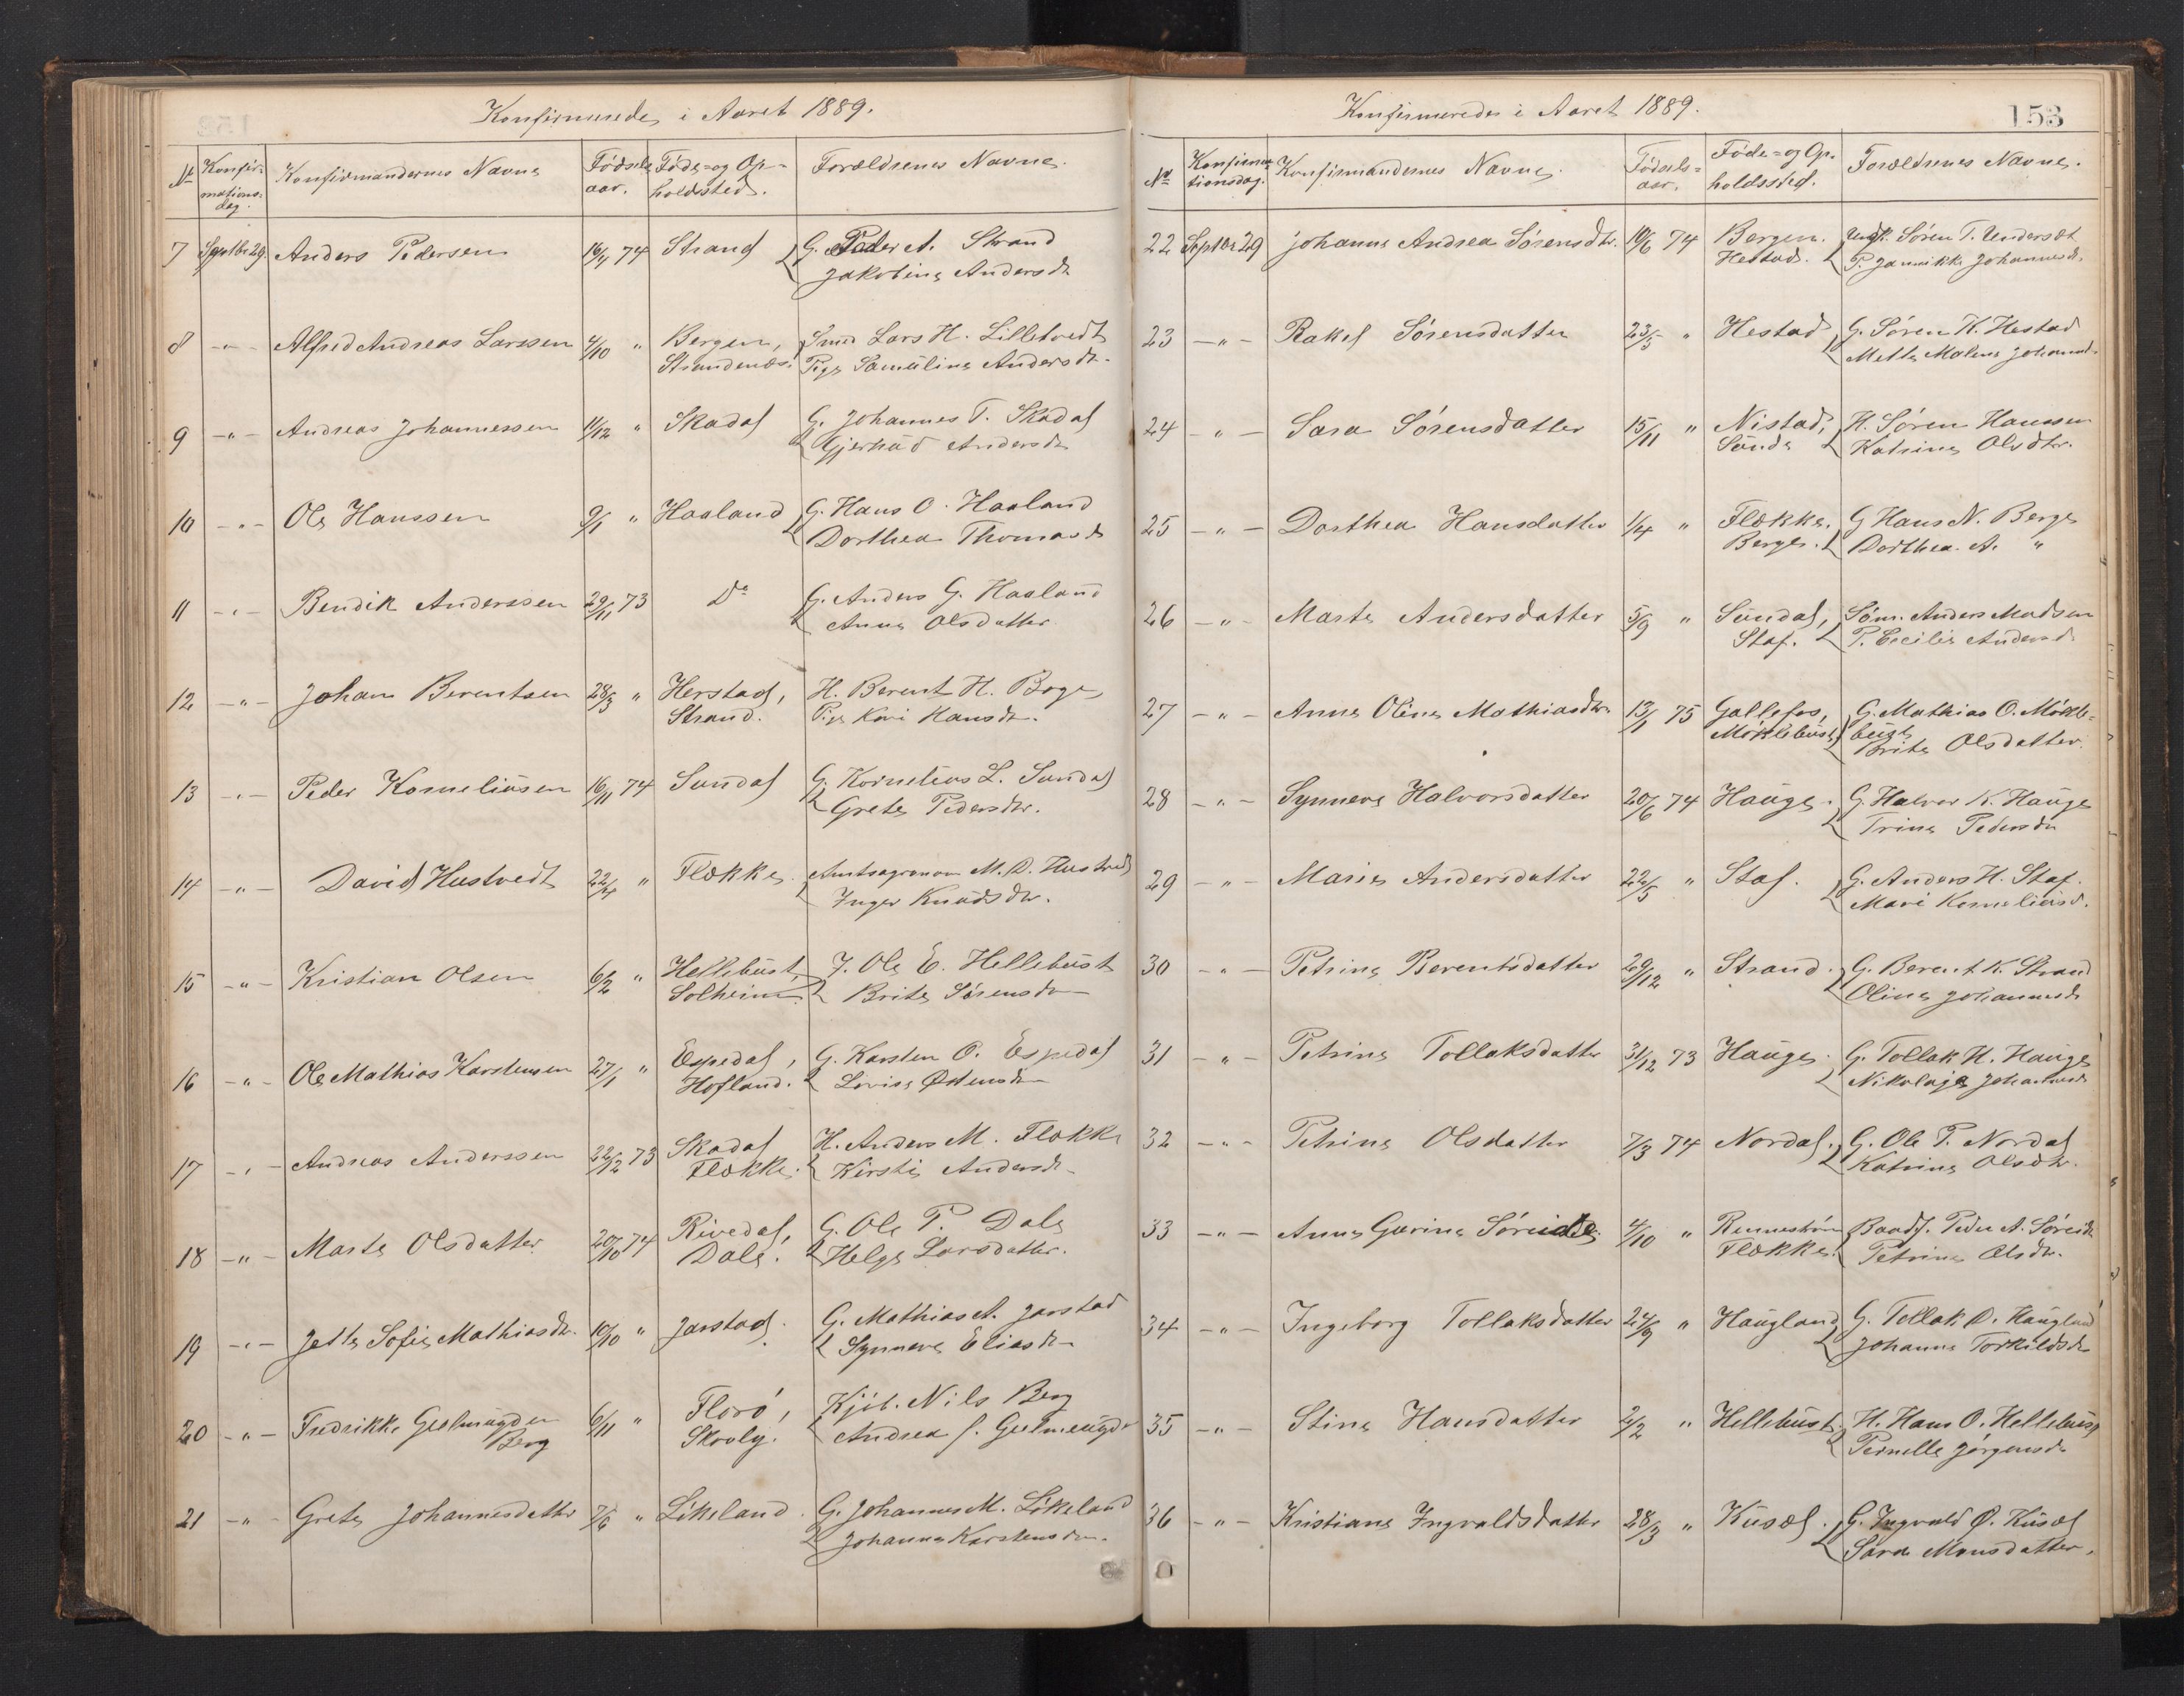 Konfirmerede i Aaret 1889.
No Konfir-mations-dag. Konfirmandernes Navne Fødsels aar. Føde- og Op-holdssted. Forældrenes Navne.
7 Septbr 29. Anders Pedersen 16/4 74 Strand G. Peder A. Strand
Jakobine Andersdr
8 -"- Alfred Andreas Larssen 4/10 " Bergen, Smed Lars H. Lilletvedt
Strandenæs. Pige Samüline Andersdr.
9 -"- Andreas Johannessen 11/12 " Skadal G. Johannes T. Skadal
Gjertrüd Andersdr
10 -"- Ole Hanssen 9/1 " Haaland G. Hans O. Haaland
Dorthea Thomasdr
11 -"- Bendik Anderssen 29/11 73 Do G. Anders G. Haaland
Anne Olsdatter
12 -"- Johan Berentsen 28/3 " Herstad, H. Berent H. Boge
Strand. Pige Kari Hansdr.
13 -"- Peder Korneliüsen 16/11 74 Sundal G. Kornelius L. Sundal
Grete Pedersdtr.
14 -"- David Hustvedt 22/4 " Flekke. Amtsagronom M. D. Hustvedt
Inger Knudsdtr.
15 -"- Kristian Olsen 6/2 " Hellebüst, J. Ole E. Hellebüst
Solheim. Brite Sørensdr
16 -"- Ole Mathias Karstensen 27/1 " Espedal, G. Karsten O. Espedal
Hofland. Lovise Østensdr
17 -"- Andreas Anderssen 22/12 73 Skadal H. Anders M. Flekke
Flekke. Kirstie Andersdr
18 -"- Marte Olsdatter 20/10 74 Rivedal, G. Ole P. Dale
Dale. Helge Larsdatter.
19 -"- Jette Sofie Mathiasdr. 10/10 " Jarstad. G. Mathias A. Jarstad
Synneve Eliasdr
20 -"- Fredrikke Geelmuyden 6/11 " Florø, Kjøb. Nils Berg
Berg Skovly. Andrea f. Geelmeuyden
21 -"- Grete Johannesdatter 7/6 " Løkeland. G. Johannes M. Løkeland
Johanne Karstensdr.
Konfirmerede i Aaret 1889.
153
No Konfirma-tionsdag. Konfirmandernes Navne. Fødsels-aar. Føde- og Op-holdssted. Forældrenes Navne.
22 Septbr 29 Johanne Andrea Sørensdtr. 10/6 74 Bergen. Ungk. Søren T. Undersæt
Hestad. P. Jannikke Johannesdr.
23 -"- Rakel Sørensdatter 23/5 " Hestad G. Søren K. Hestad
Mette Malene Johannesdr
24 -"- Sara Sørensdatter 15/11 " Nistad, H. Søren Hanssen
Sande Katrine Olsdtr.
25 -"- Dorthea Hansdatter 1/4 " Flekke. G Hans N. Berge
Berge. Dorthea A. "
26 -"- Marte Andersdatter 5/9 " Sündal, Søm. Anders Madsen
Staf. P. Cecilie Andersdr
27 -"- Anne Oline Mathiasdtr 13/1 75 Gallefos, G. Mathias O. Møkle-
Møklebüst büst
Brite Olsdatter.
28 -"- Synneve Halvorsdatter 20/6 74 Haüge. G. Halvor K. Haüge
Trine Pedersdtr
29 -"- Marie Andersdatter 22/5 " Staf. G. Anders H. Staf.
Mari Korneliüsd.
30 -"- Petrine Berentsdatter 29/12 " Strand. G. Berent K. Strand
Oline Johannesdr
31 -"- Petrine Tollaksdatter 31/12 73 Haüge. G. Tollak H. Haüge
Nikolaje Johannesdr
32 -"- Petrine Olsdatter 7/3 74 Nordal. G. Ole P. Nordal
Katrine Olsdtr.
33 -"- Anne Gurine Søreide. 4/10 " Rennestrøm Baadsf. Peder A. Søreide
Flekke. Petrine Olsdtr.
34 -"- Ingeborg Tollaksdatter 24/9 " Haugland G. Tollak O. Haugland
Johanne Torkildsdr
35 -"- Stine Hansdatter 2/2 " Hellebüst. H. Hans O. Hellebüst
Pernelle Jørgensdr
36 -"- Kristiane Ingvaldsdatter 28/3 " Küsæl. G. Ingvald Ø. Küsæl
Sara Monsdatter.